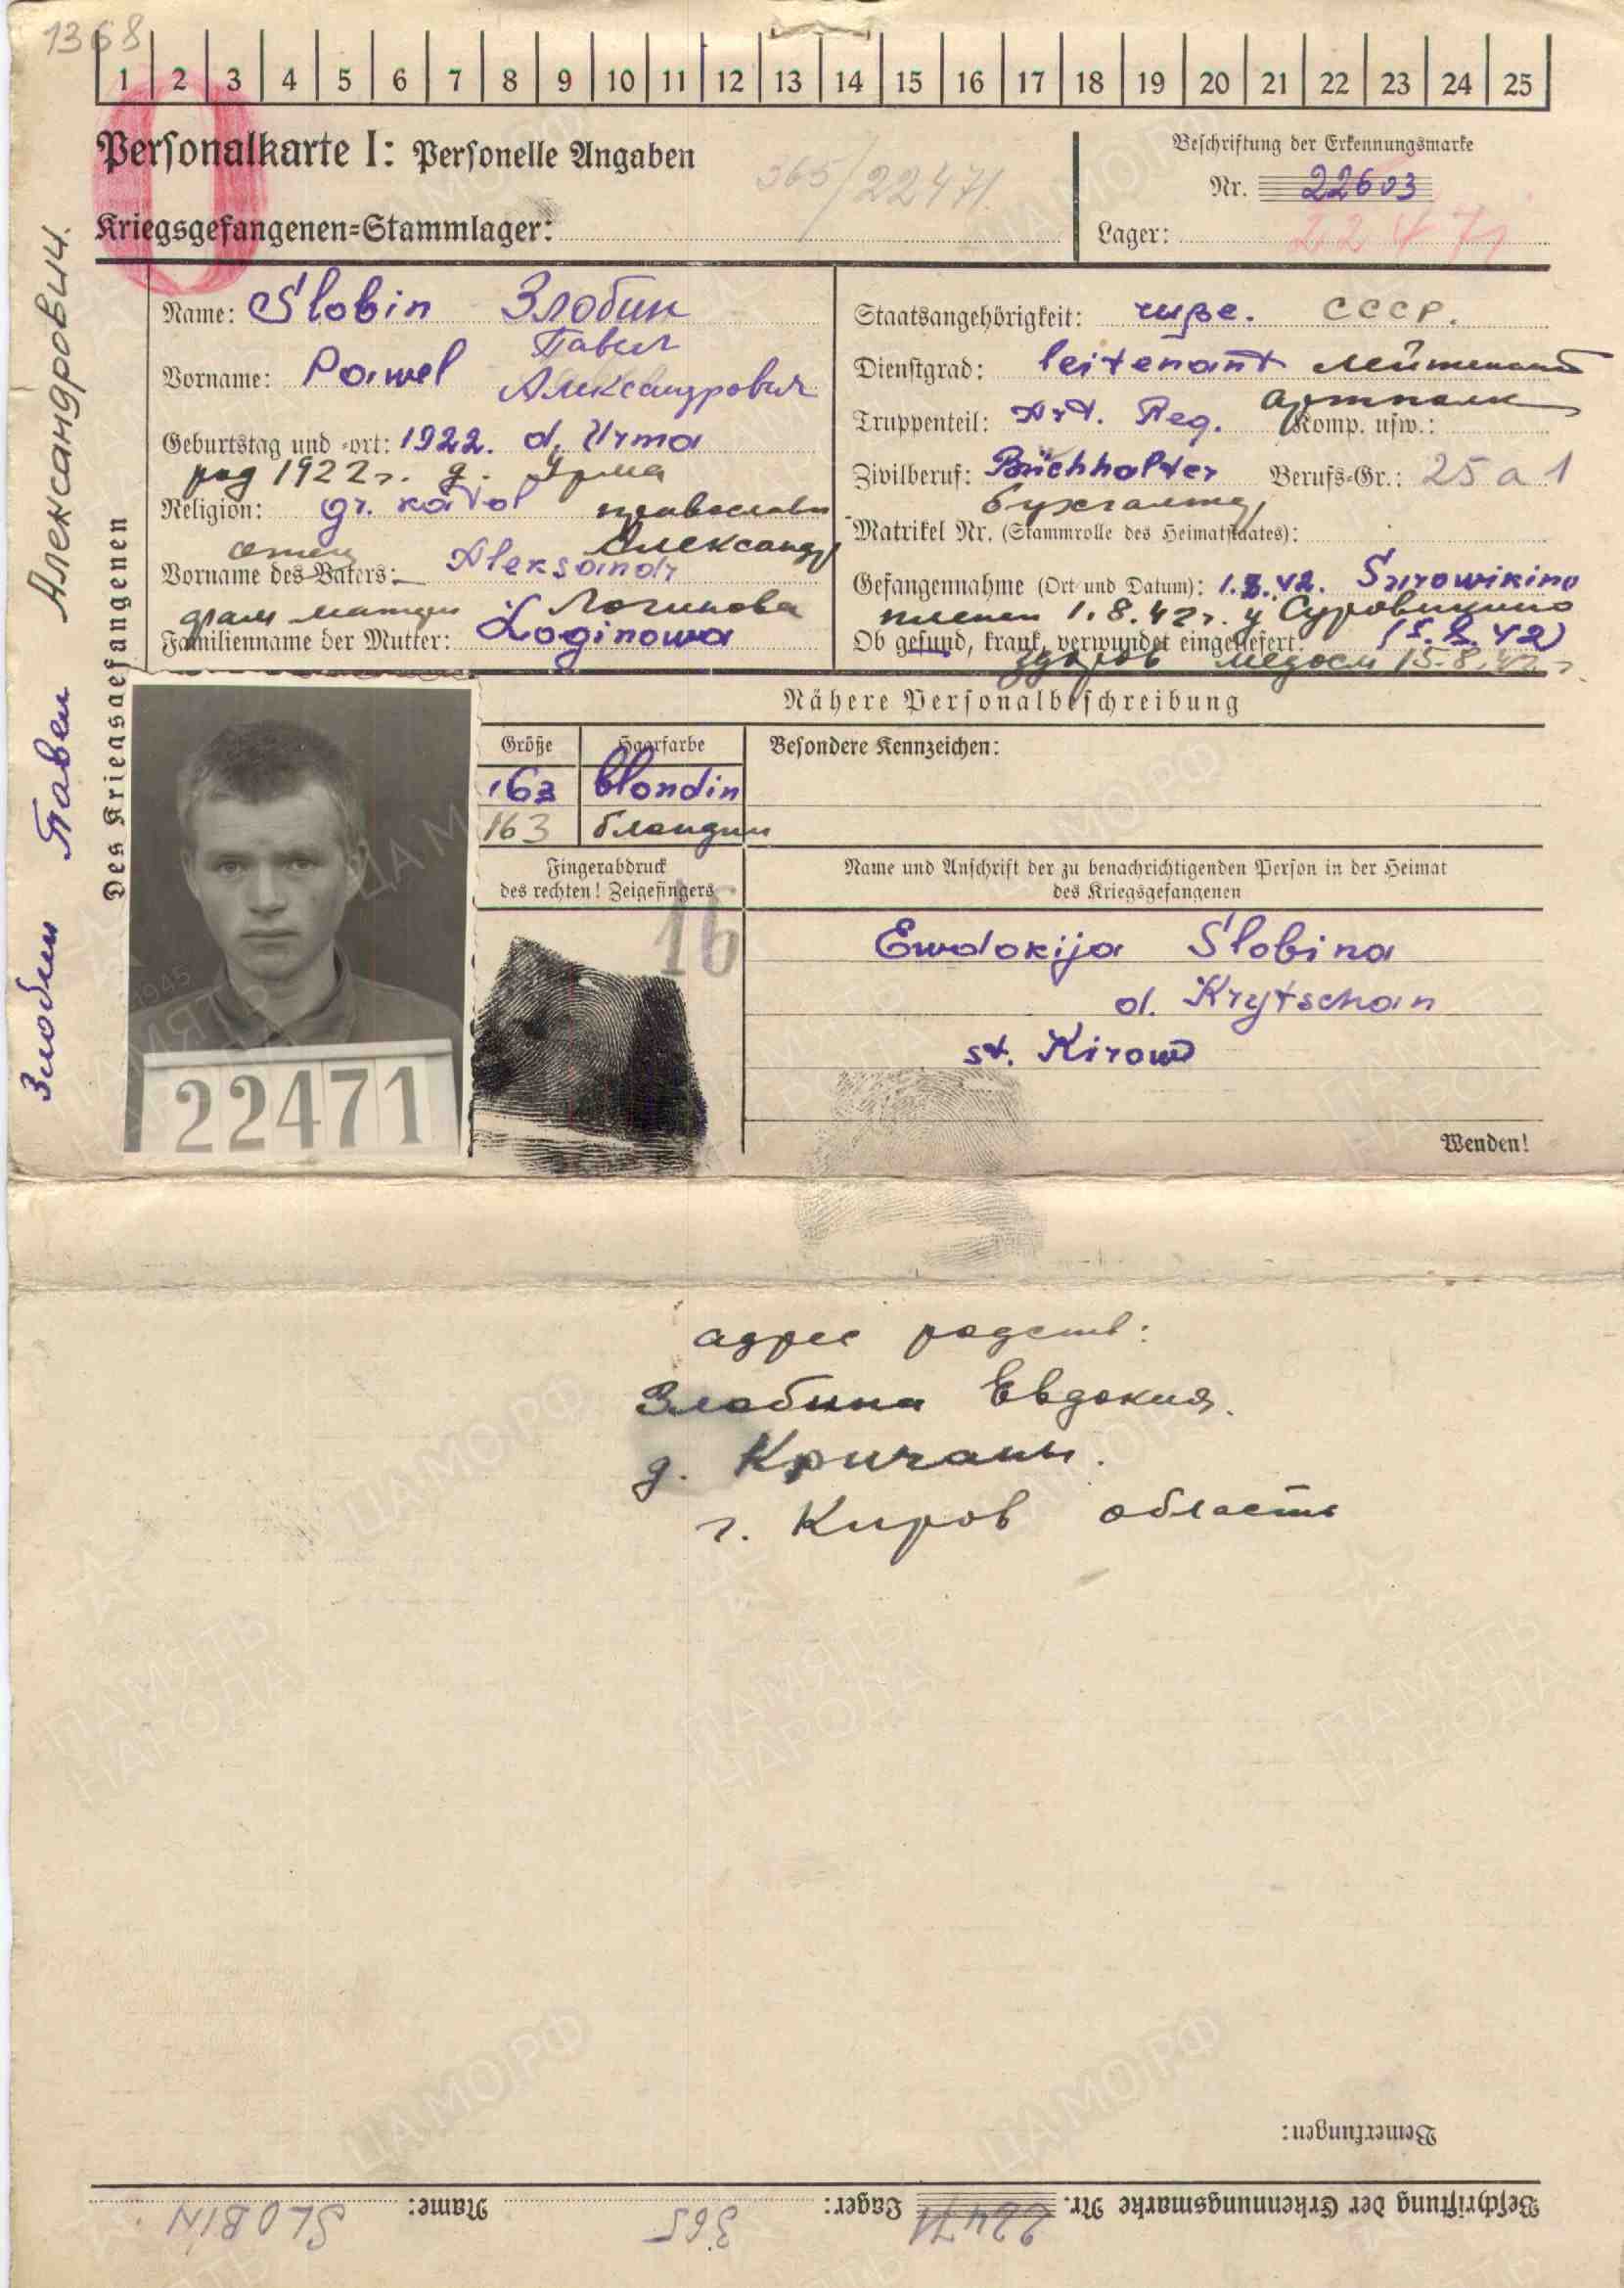 1368
1 2 3 4 5 6 7 8 9 10 11 12 13 14 15 16 17 18 19 20 21 22 23 24 25
Personalkarte I: Personelle Angaben
365/22471.
Beschriftung der Erkennungsmarke
Nr. 22603
Kriegsgefangenen-Stammlager:
Lager: 22471
Des Kriegsgefangenen
Злобин Павел Александрович.
Name: Slobin Злобин
Павел
Vorname: Pawel Александрович
Geburtstag und -ort: 1922. d. Urma
род 1922 г. д. Урма
Religion: gr. katol православн
отец Александр
Vorname des Vaters: Aleksandr
фам матери Логинова
Familienname der Mutter: Loginowa
Staatsangehörigkeit: ruße. СССР.
Dienstgrad: leitenant лейтенант
Truppenteil: Art. Reg. артполк Komp. usw.:
Zivilberuf: Buchhalter Berufs-Gr.: 25 a 1
бухгалтер
Matrikel Nr. (Stammrolle des Heimatstaates):
Gefangennahme (Ort und Datum): 1.8.42. Surowikino
пленен 1.8.42 г. у Суровикино
Ob gesund, krank, verwundet eingeliefert:
здоров 15.8.42 г.
Nähere Personalbeschreibung
Größe Haarfarbe Besondere Kennzeichen:
163 blondin
163 блондин
Fingerabdruck
des rechten! Zeigefingers
16
Name und Anschrift der zu benachrichtigenden Person in der Heimat
des Kriegsgefangenen
Ewdokija Slobina
d. Krytschan
st. Kirow
22471
Wenden!
адрес родств:
Злобина Евдокия.
д. Кричаны.
г. Киров область
Bemerkungen:
Beschriftung der Erkennungsmarke Nr. 22471 Lager: 365 Name: SLOBIN
ЦАМО.РФ
ПАМЯТЬ
НАРОДА